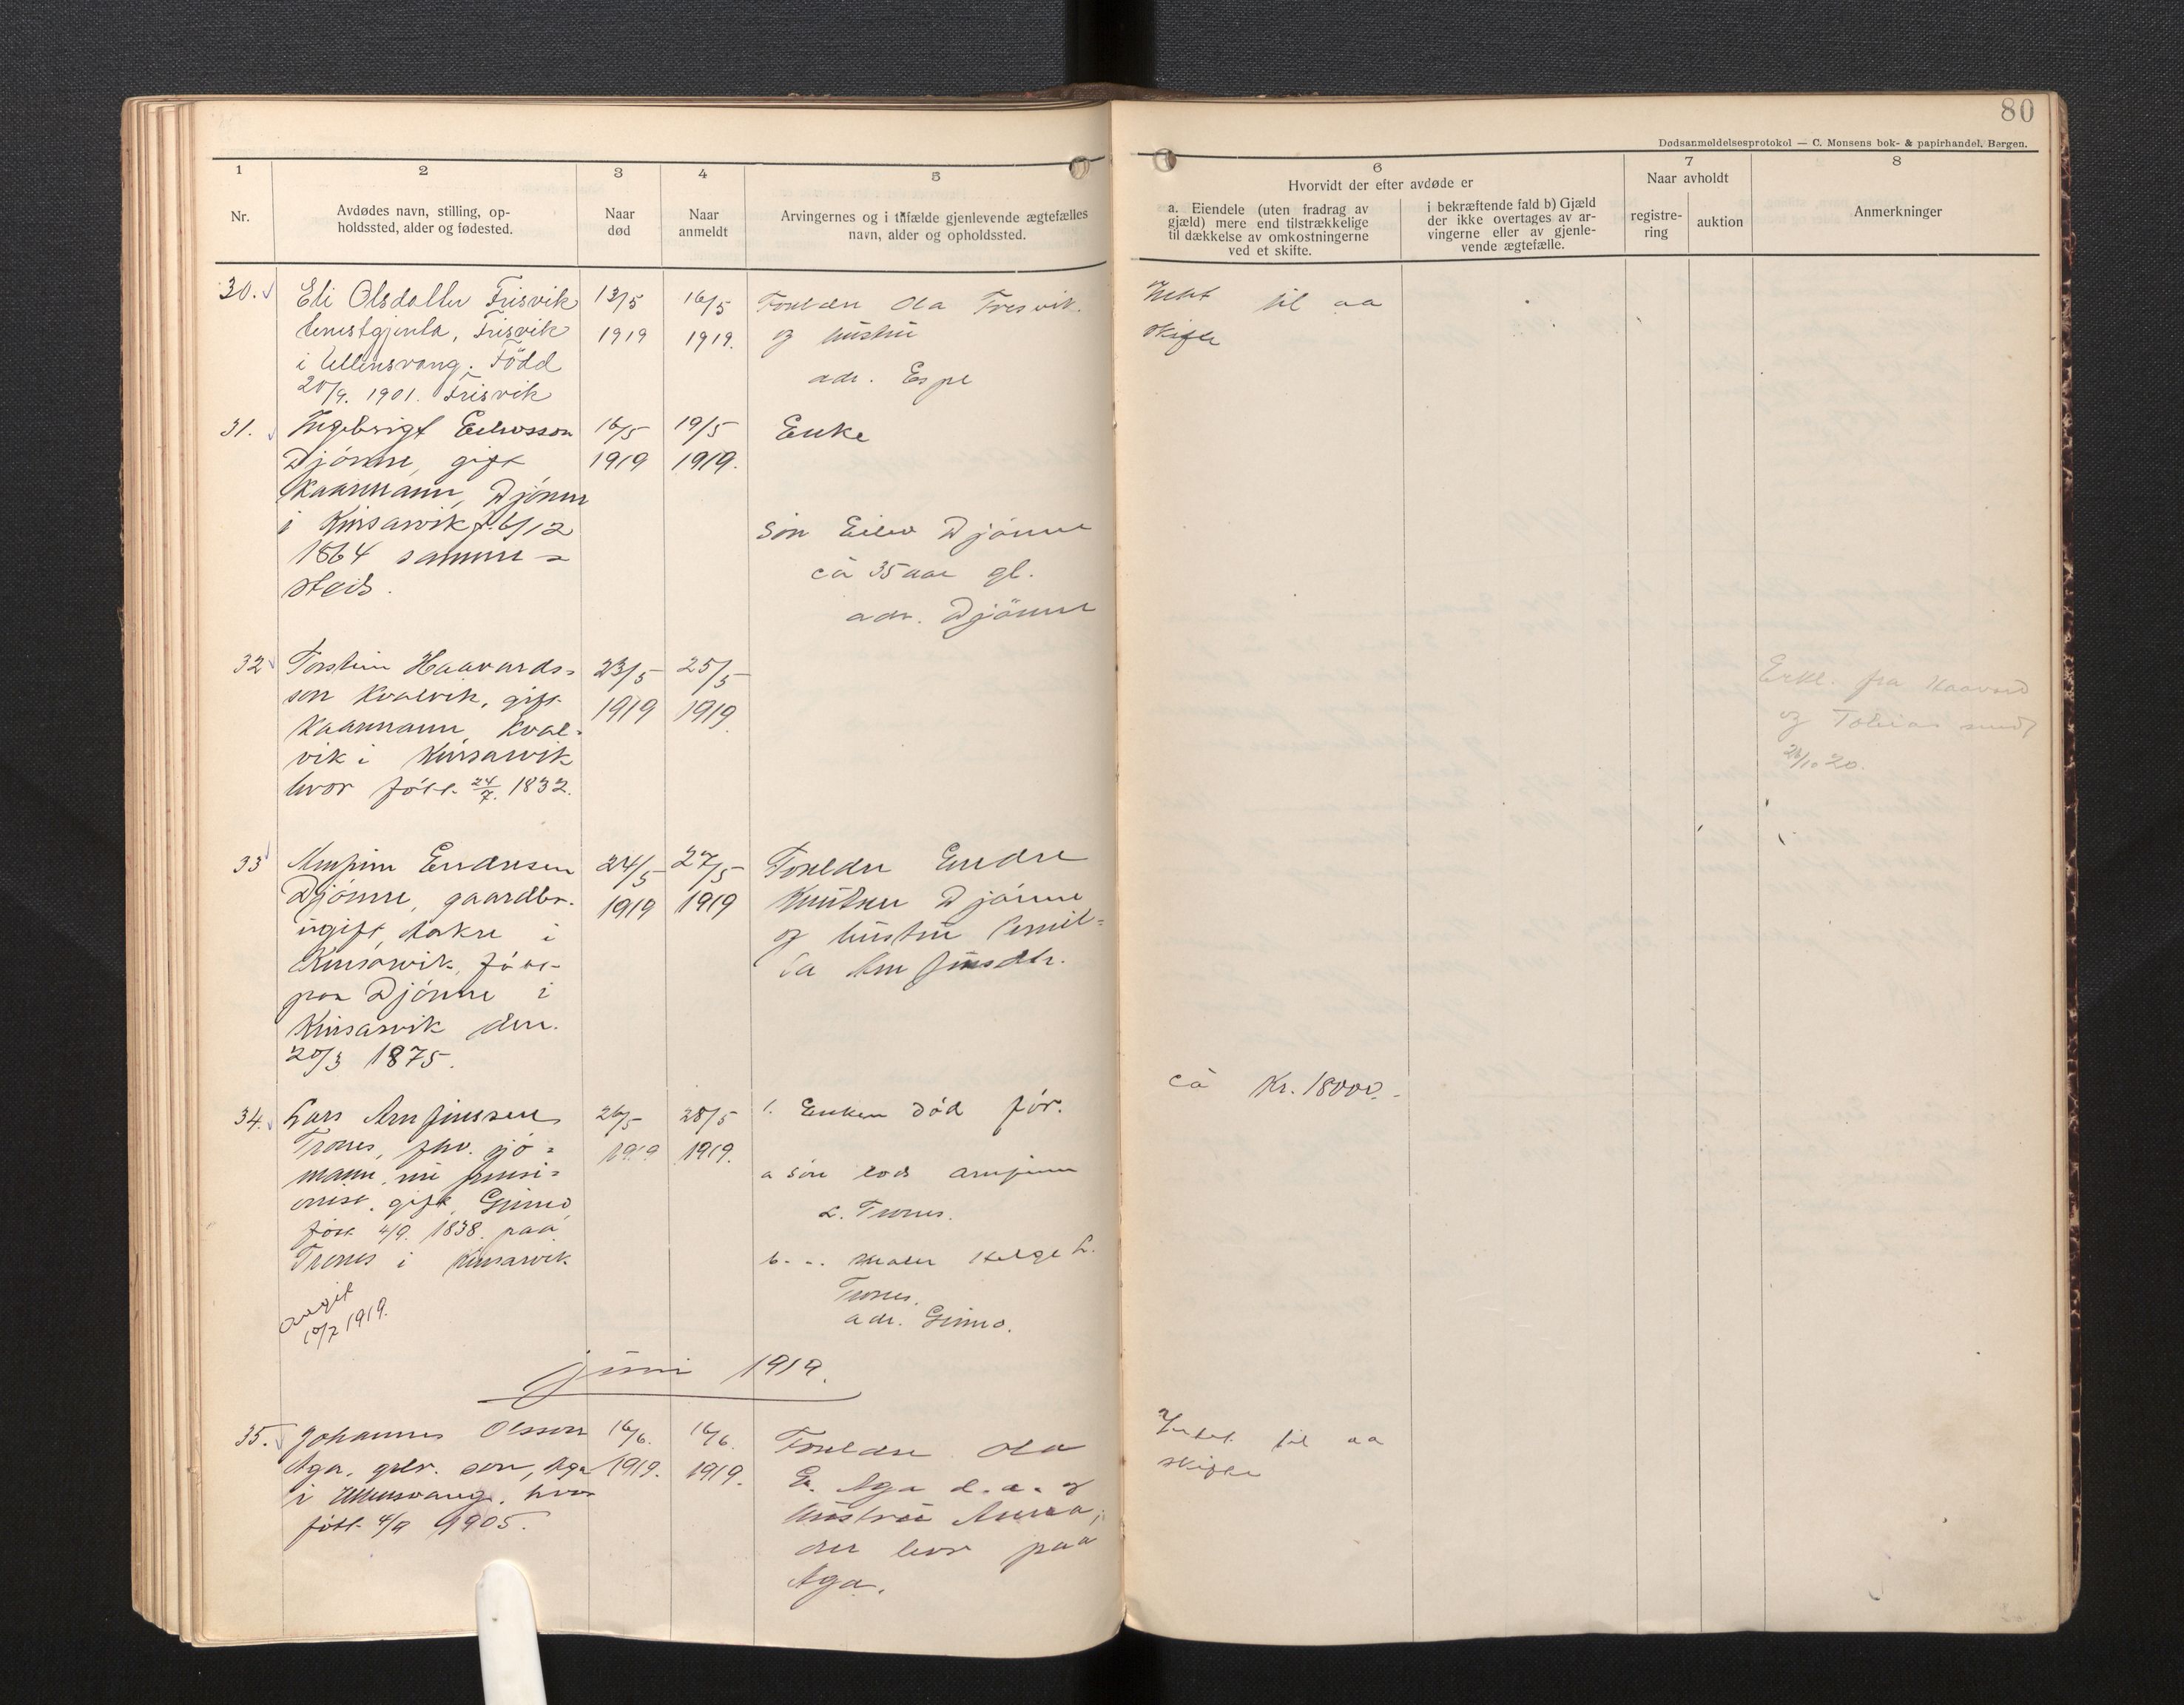 80
Dødsanmeldelsesprotokol — C. Monsens bok- & papirhandel, Bergen.
1
2
3
4
5
6
7
8
Nr.
Avdødes navn, stilling, op-
holdssted, alder og fødested.
Naar
død
Naar
anmeldt
Arvingernes og i tilfælde gjenlevende ægtefælles
navn, alder og opholdssted.
Hvorvidt der efter avdøde er
a. Eiendele (uten fradrag av
gjæld) mere end tilstrækkelige
til dækkelse av omkostningerne
ved et skifte.
i bekræftende fald b) Gjæld
der ikke overtages av ar-
vingerne eller av gjenle-
vende ægtefælle.
Naar avholdt
registre-
ring
auktion
Anmerkninger
30.
Eli Olsdatter Frisvik
tenestgjenta, Frisvik
i Ullensvang. Född
20/9. 1901. Frisvik
13/5
1919
16/5
1919.
Foreldre Ola Fresvik.
og hustru
adr. Espe
Intet til aa
skifte
31.
Ingebrigt Eilevsson
Djönne, gift
kaarmann, Djönne
i Kinsarvik f. 6/12
1864 samme-
steds.
16/5
1919
19/5
1919.
Enke
Sön Eilev Djönne
ca 35 aar gl.
adr. Djönne
32
Torstein Haavards-
son Kvalvik, gift
kaarmann, Kval-
vik i Kinsarvik
hvor född 24/7. 1832.
23/5
1919
25/5
1919
Erkl. fra Haavard
og Tobias
20.
33
Arnfinn Endresen
Djönne, gaardbr.
ugift, i
Kinsarvik, född
paa Djönne i
Kinsarvik den.
20/3 1875.
24/5
1919
27/5
1919
Foreldre Endre
Knutsen Djönne
og hustru
Arnfinsdtr.
ca Kr. 18000.-
34.
Lars Arnfinssen
Trones, fhv. sjö-
mann, nu pensi-
onist. gift, Grimo,
född 4/9. 1838. paa
Trones i Kinsarvik
26/5
1919
28/5
1919.
1. Enken död för.
a sön lods Arnfinn
L. Trones.
b. -.. maler Helge L.
Trones.
adr. Grimo.
avgit
10/7 1919.
juni 1919.
35.
Johannes Olsson
Aga, gbr. son, Aga
i Ullensvang, hvor
född 4/9 1905.
16/6.
1919.
16/6.
1919.
Foreldre Ola
E. Aga d.a. og
hustru Anna,
der bor paa
Aga.
Intet til aa
skifte